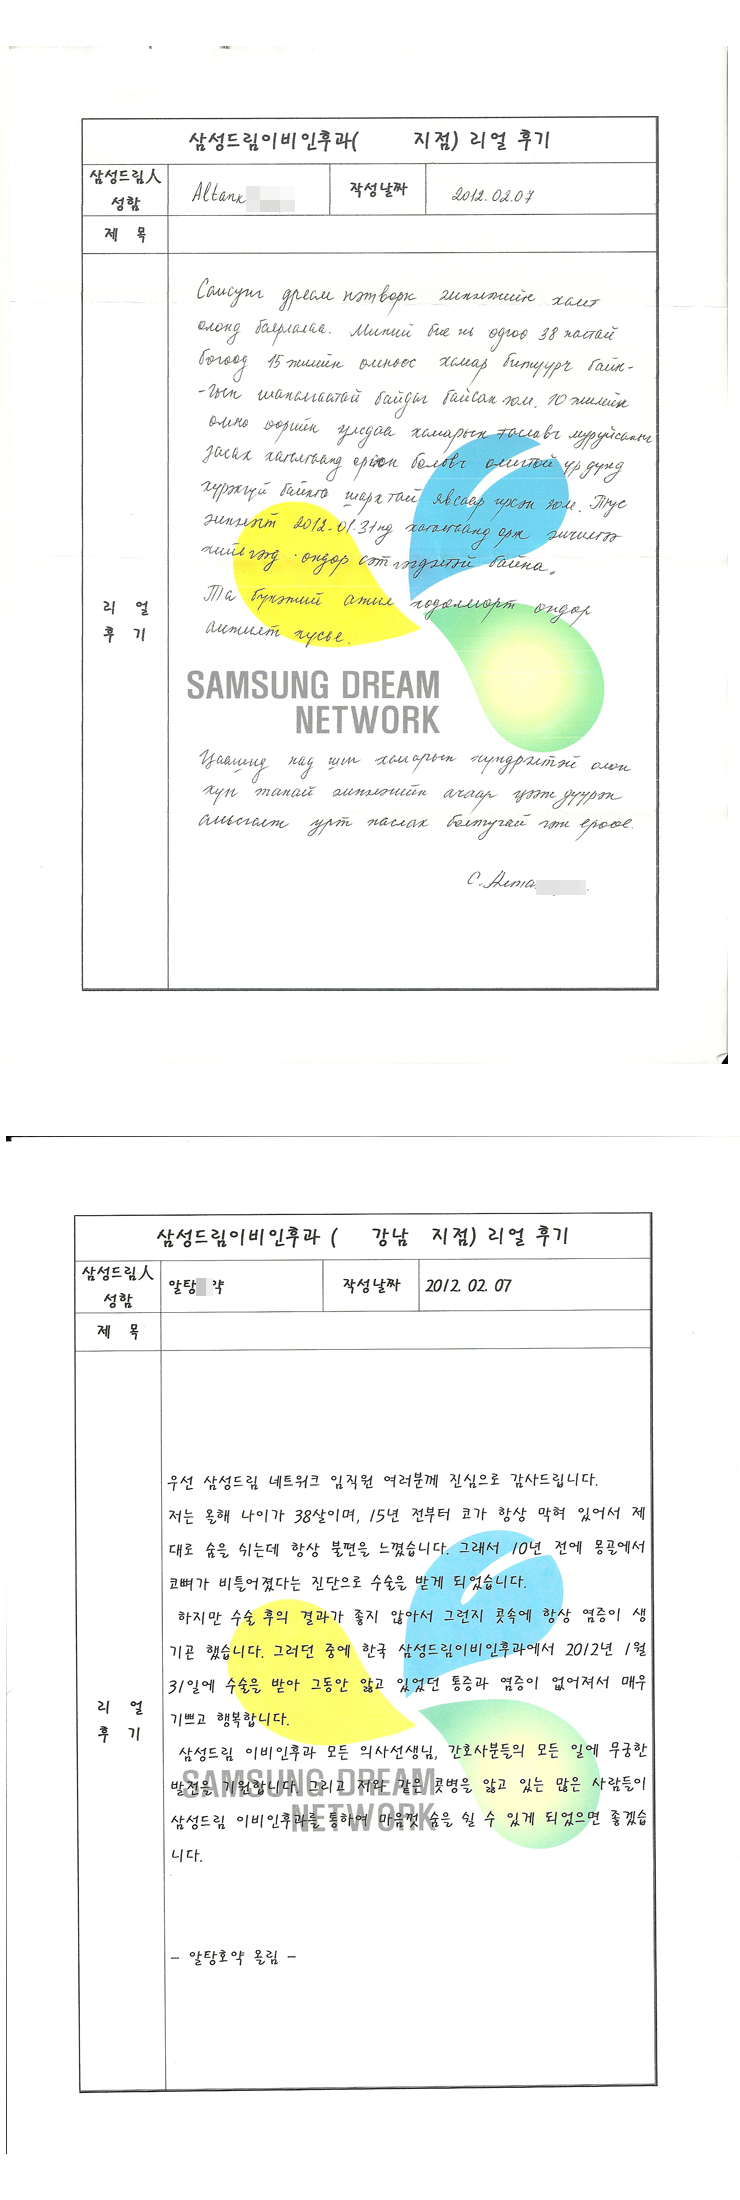 삼성드림이비인후과( 지점) 리얼 후기
삼성드림人 성함
Altank
작성날짜
2012.02.07
제 목
리 얼
후 기
Самсунг дреам нэтворк эмнэлгийн хамт
олонд баярлалаа. Миний бие нь одоо 38 настай
бөгөөд 15 жилийн өмнөөс хамар битүүрч байн-
-гын шаналгаатай байдаг байсан юм. 10 жилийн
өмнө өөрийн улсдаа хамарын таславч муруйсаныг
засах хагалгаанд орсон боловч олигтой үр дүнд
хүрэхгүй байнга шархтай явсаар ирсэн юм. Тус
эмнэлэгт 2012.01.31нд хагалгаанд орж эмчилгээ
хийлгээд өндөр сэтгэгдэлтэй байна.
Та бүхэний ажил хөдөлмөрт өндөр
амжилт хүсье.
SAMSUNG DREAM
NETWORK
Цаашид над шиг хамарын хүндрэлтэй олон
хүн танай эмнэлгийн ачаар цээж дүүрэн
амьсгалж урт наслах болтугай гэж ерөөе.
С. Алта
삼성드림이비인후과 ( 강남 지점) 리얼 후기
삼성드림人 성함
알탕 약
작성날짜
2012. 02. 07
제 목
리 얼
후 기
우선 삼성드림 네트워크 임직원 여러분께 진심으로 감사드립니다.
저는 올해 나이가 38살이며, 15년 전부터 코가 항상 막혀 있어서 제
대로 숨을 쉬는데 항상 불편을 느꼈습니다. 그래서 10년 전에 몽골에서
코뼈가 비틀어졌다는 진단으로 수술을 받게 되었습니다.
하지만 수술 후의 결과가 좋지 않아서 그런지 콧속에 항상 염증이 생
기곤 했습니다. 그러던 중에 한국 삼성드림이비인후과에서 2012년 1월
31일에 수술을 받아 그동안 앓고 있었던 통증과 염증이 없어져서 매우
기쁘고 행복합니다.
삼성드림 이비인후과 모든 의사선생님, 간호사분들의 모든 일에 무궁한
발전을 기원합니다. 그리고 저와 같은 콧병을 앓고 있는 많은 사람들이
삼성드림 이비인후과를 통하여 마음껏 숨을 쉴 수 있게 되었으면 좋겠습
니다.
SAMSUNG DREAM
NETWORK
- 알탕호약 올림 -